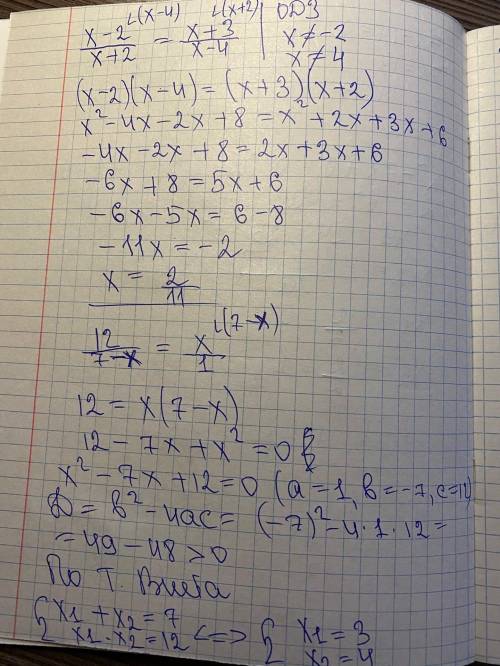 (x-4) (x+2) | ОДЗ
x-2/x+2 = x+3/x-4 | x≠-2
x≠4
(x-2)(x-4)=(x+3)(x+2)
x²-4x-2x+8=x²+2x+3x+6
-4x-2x+8=2x+3x+6
-6x+8=5x+6
-6x-5x=6-8
-11x=-2
x=2/11
12/7-x = x/1 (7-x)
12=x(7-x)
12-7x+x²=0
x²-7x+12=0 (a=1, b=-7, c=12)
D=b²-4ac=(-7)²-4·1·12=
=49-48>0
По т. Виета
{x1+x2=7
x1·x2=12 <=> { x1=3
x2=4